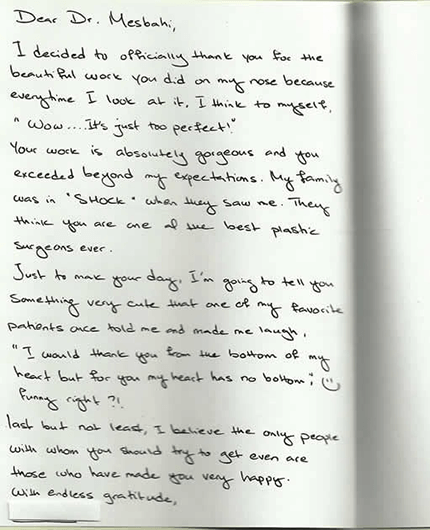 Dear Dr. Mesbahi,
I decided to officially thank you for the
beautiful work you did on my nose because
everytime I look at it, I think to myself,
"Wow....It's just too perfect!"
Your work is absolutely gorgeous and you
exceeded beyond my expectations. My family
was in "SHOCK" when they saw me. They
think you are one of the best plastic
surgeons ever.
Just to make your day, I'm going to tell you
something very cute that one of my favorite
patients once told me and made me laugh,
"I would thank you from the bottom of my
heart but for you my heart has no bottom", :)
Funny right ?!
last but not least, I believe the only people
with whom you should try to get even are
those who have made you very happy.
With endless gratitude,